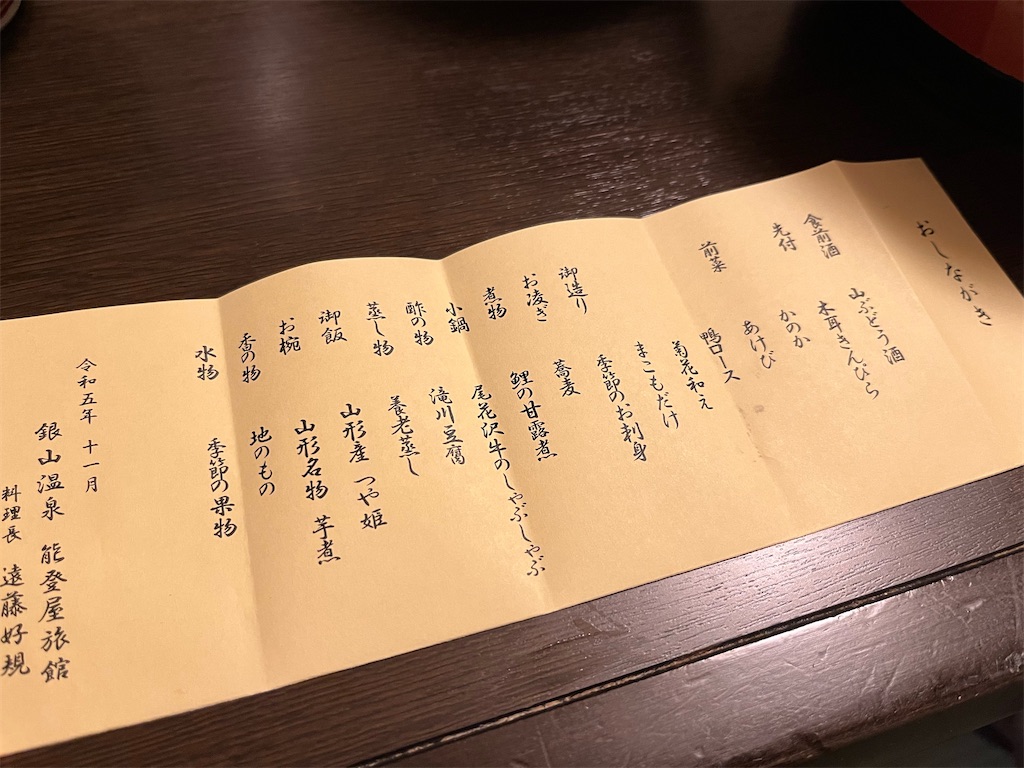 おしながき
食前酒 山ぶどう酒
先付 木耳きんぴら
かのか
前菜 あけび
鴨ロース
菊花和え
まこもだけ
御造り 季節のお刺身
お凌ぎ 蕎麦
煮物 鯉の甘露煮
小鍋 尾花沢牛のしゃぶしゃぶ
酢の物 滝川豆腐
蒸し物 養老蒸し
御飯 山形産 つや姫
お椀 山形名物 芋煮
香の物 地のもの
水物 季節の果物
令和五年 十一月
銀山温泉 能登屋旅館
料理長 遠藤好規